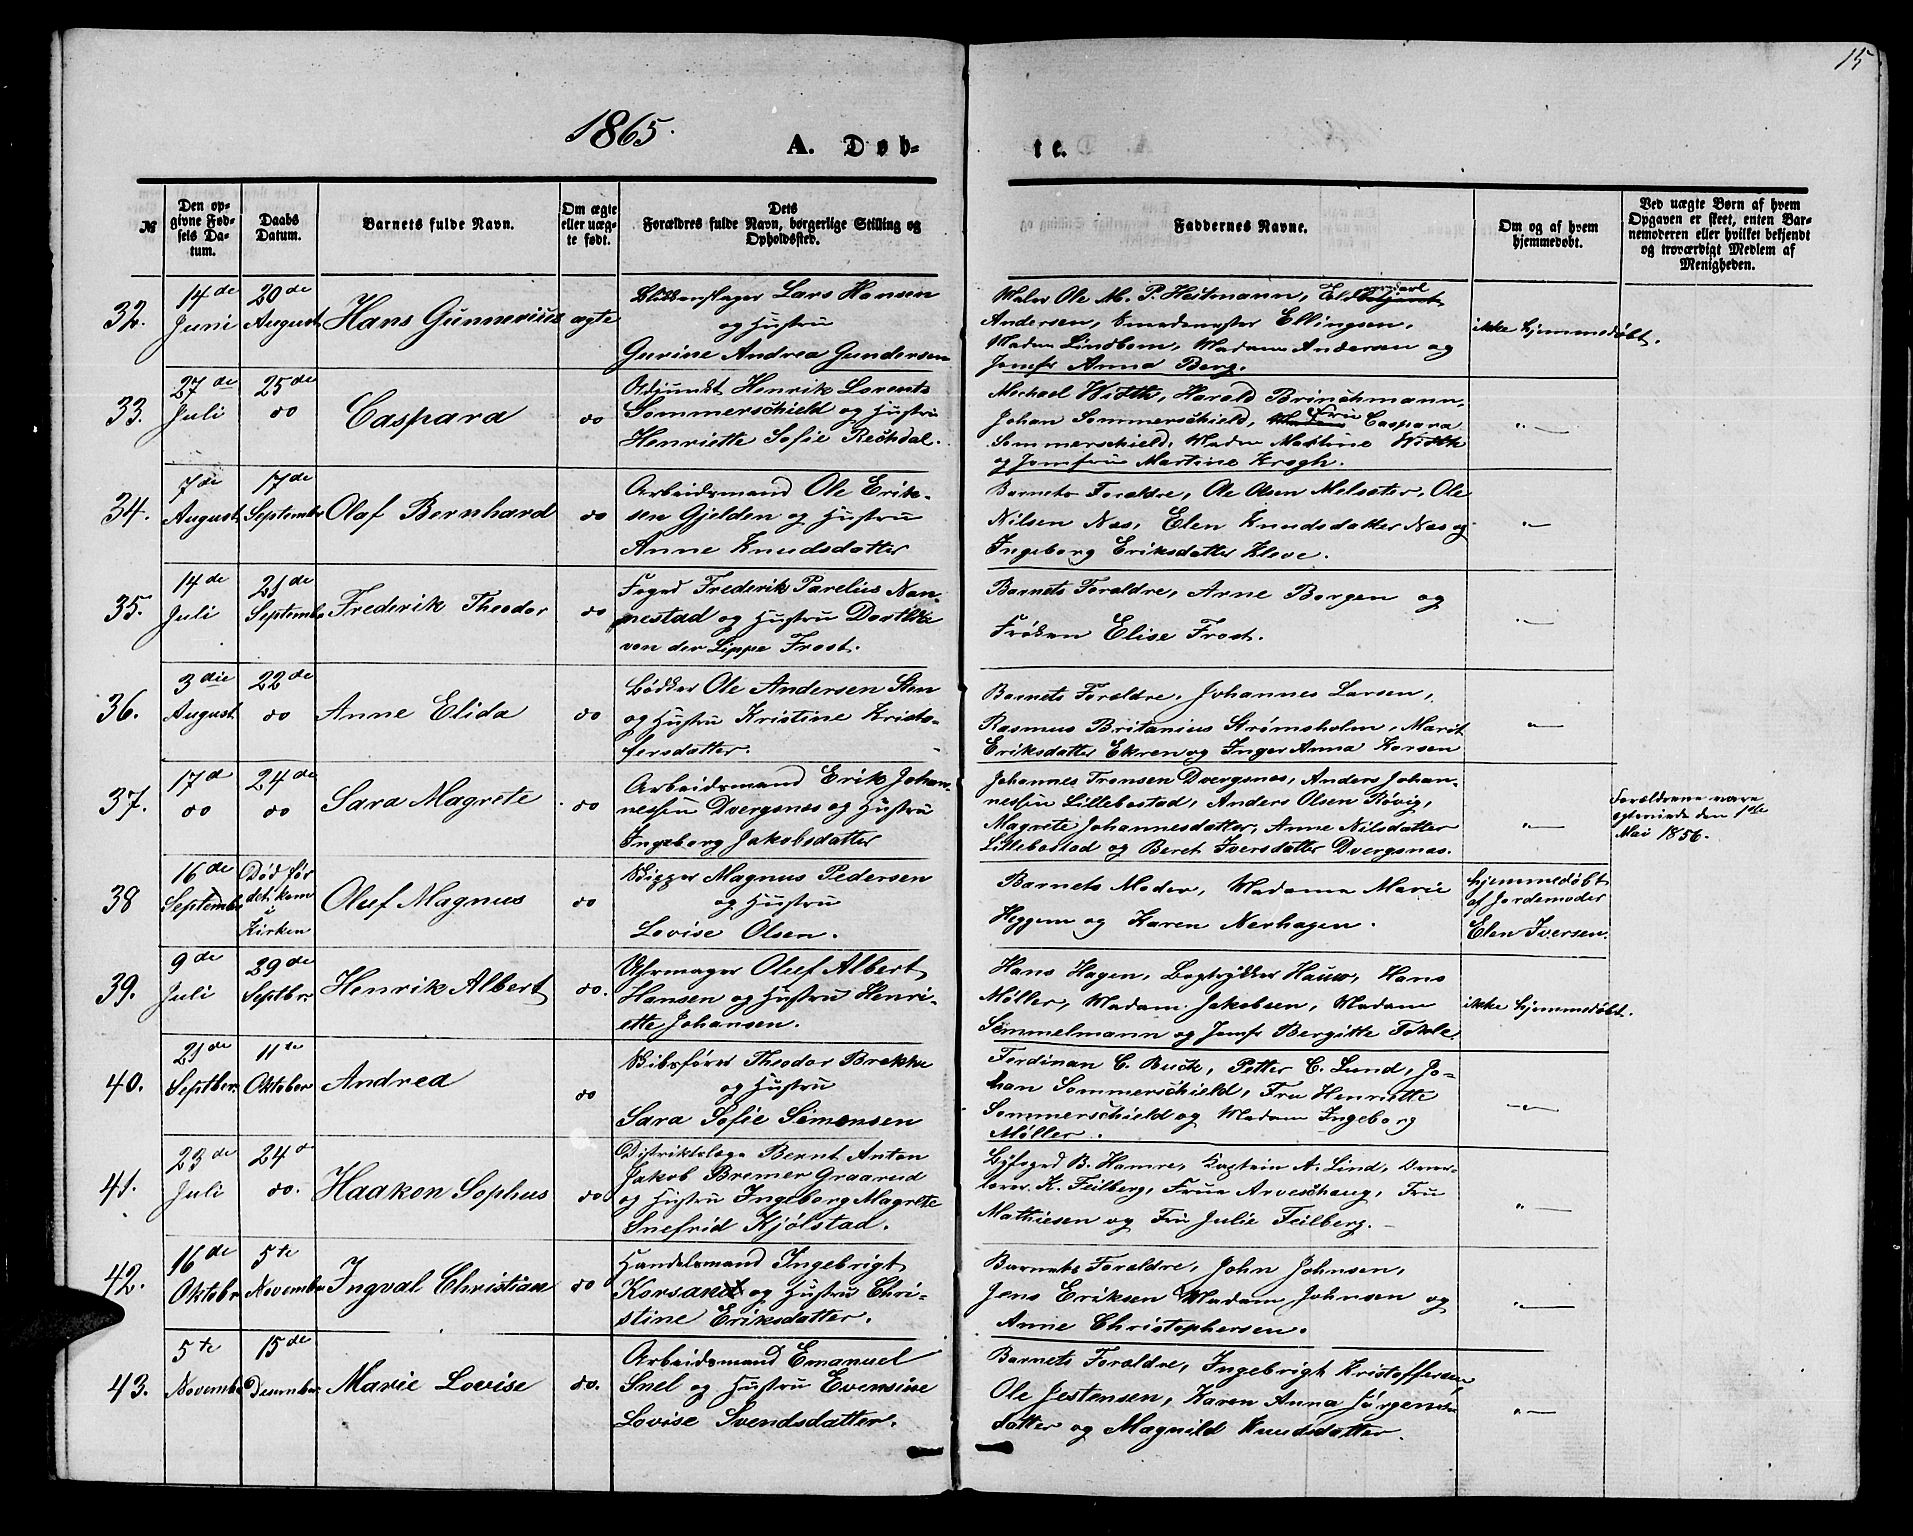 15
1865.
A. Døb-
te.
№
Den op-
givne Fød-
sels Da-
tum.
Daabs
Datum.
Barnets fulde Navn.
Om ægte
eller uæg-
te født.
Dets
Forældres fulde Navn, borgerlige Stilling og
Opholdssted.
Faddernes Navne.
Om og af hvem
hjemmedøbt.
Ved uægte Børn af hvem
Opgaven er skeet, enten Bar-
nemoderen eller hvilket bekjendt
og troværdigt Medlem af
Menigheden.
32.
14de
Juni
20de
August
Hans Gunnerius
ægte
Blikkenslager Lars Hansen
og Hustru
Gurine Andrea Gundersen
Maler Ole M. P. Heitmann,
Andersen, Smedemester Ellingsen,
Madm Lindbom, Madame Andersen og
Jomfr Anna Berg.
ikke hjemmedøbt.
33.
27de
Juli
25de
do
Caspara
do
Adjunkt Henrik Lorents
Sommerschield og Hustru
Henriette Sofie Rechdal.
Michael Width, Harald Brinchmann,
Johan Sommerschield, Fru Caspara
Sommerschield, Madm Martine Width
og Jomfru Martine Krogh.
-"-
34.
7de
August
17de
September
Olaf Bernhard
do
Arbeidsmand Ole Erik-
sen Gjelden og Hustru
Anne Knudsdatter
Barnets Forældre, Ole Olsen Melsæter, Ole
Nilsen Næs, Elen Knudsdatter Næs og
Ingeborg Eriksdatter Kleve.
-"-
35.
14de
Juli
21de
September
Frederik Theodor
do
Foged Frederik Parelius Nan-
nestad og Hustru Dorthea
von der Lippe Frost.
Barnets Forældre, Arne Borgen og
Frøken Elise Frost.
-"-
36.
3die
August
22de
do
Anne Elida
do
Bødker Ole Andersen Sten
og Hustru Kristine Kristo-
fersdatter.
Barnets Forældre, Johannes Larsen,
Rasmus Britanius Strømsholm, Marit
Eriksdatter Ekren og Inger Anna Korsen
-"-
37.
17d
do
24de
do
Sara Magrete
do
Arbeidsmand Erik Johan-
nessen Dvergsnes og Hustru
Ingeborg Jakobsdatter
Johannes Tronsen Dvergsnes, Anders Johan-
nessen Lillebostad, Anders Olsen Røvig,
Magrete Johannesdatter, Anne Nilsdatter
Lillebostad og Beret Iversdatter Dvergsnes.
-"-
Forældrene vare
ægteviede den 1ste
Mai 1856.
38
16de
September
Død før
det kom
i
Kirken
Oluf Magnus
do
Skipper Magnus Pedersen
og Hustru
Lovise Olsen.
Barnets Moder, Madame Marie
Heggem og Karen Nerhagen.
Hjemmedøbt
af Jordemoder
Elen Iversen.
39.
9de
Juli
29de
Septber
Henrik Albert
do.
Uhrmager Oluf Albert
Hansen og Hustru Henri-
ette Johansen.
Hans Hagen, Bogtrykker Hauw, Hans
Møller, Madam Jakobsen, Madam
Semmelmann og Jomfr Bergitte Tokle.
ikke hjemmedøbt.
40.
21de
Septber
11te
Oktober
Andrea
do
Skibsfører Theodor Brekke
og Hustru
Sara Sofie Simonsen
Ferdinan C. Buck, Petter C. Lund, Jo-
han Sommerschield, Fru Henriette
Sommerschield og Madam Ingeborg
Møller.
-"-
41.
23de
Juli
24d
do.
Haakon Sophus
do
Distriktslæge Bernt Anton
Jakob Bremer Graarud
og Hustru Ingeborg Magrete
Snefrid Kjølstad.
Byfoged B. Hamre, Kaptein A. Lind,
K. Feilberg, Frue Arveschaug, Fru
Mathiesen og Fru Julie Feilberg.
-"-
42.
16de
Oktobr
5te
November
Ingval Christian
do
Handelsmand Ingebrigt
og Hustru Chri-
stine Eriksdatter.
Barnets Forældre, John Johnsen,
Jens Eriksen Madam Johnsen og
Anne Christophersen.
-"-
43.
5te
November
15de
Desember
Marie Lovise
do.
Arbeidsmand Emanuel
Snel og Hustru Evensine
Lovise Svendsdatter.
Barnets Forældre, Ingebrigt Kristoffersen,
Ole Jestensen, Karen Anna Jørgens-
datter og Magnild Knudsdatter.
-"-